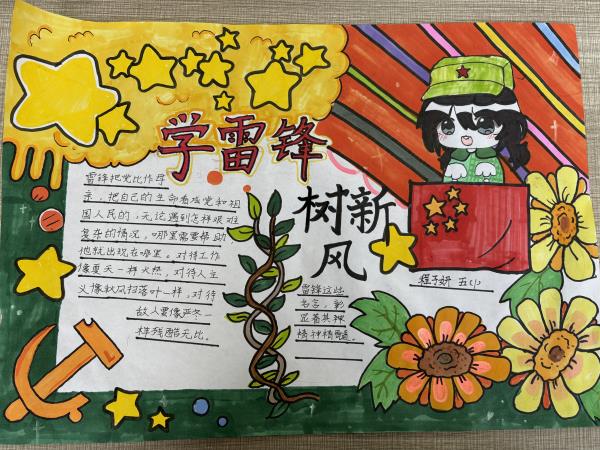 学雷锋
树新风
雷锋把党比作母
亲，把自己的生命看成党和祖
国人民的，无论遇到怎样艰难
复杂的情况，哪里需要帮助
他就出现在哪里。对待工作
像夏天一样火热，对待人主
义像秋风扫落叶一样，对待
敌人要像严冬一
样残酷无比。
雷锋这些
名言，彰
显着其
精神精髓。
程子妍 五（1）